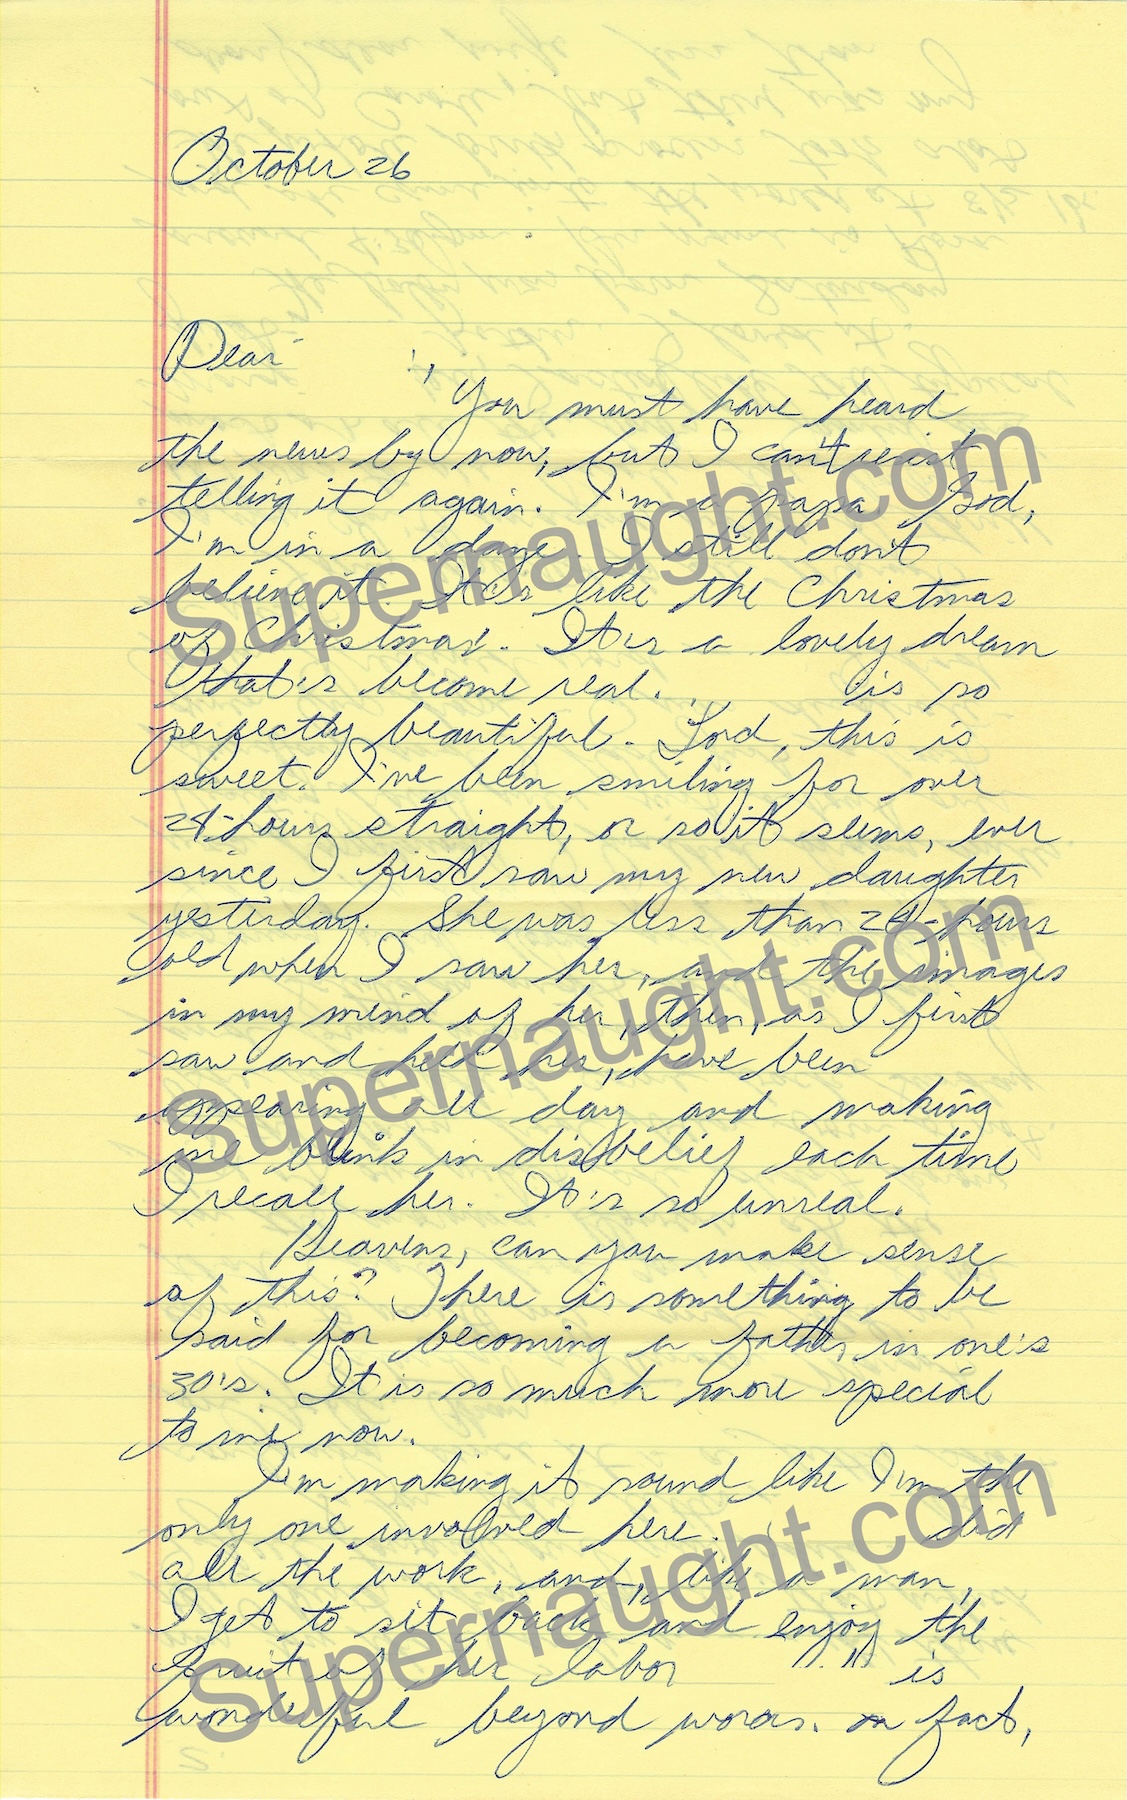 October 26
Dear
You must have heard
the news by now, but I can't resist
telling it again. I'm a papa. God,
I'm in a daze. I still don't
believe it. It is like the Christmas
of Christmas. It is a lovely dream
that is become real. is so
perfectly beautiful. Lord, this is
sweet. I've been smiling for over
24-hours straight, or so it seems, ever
since I first saw my new daughter
yesterday. She was less than 24-hours
old when I saw her, and the images
in my mind of her, then, as I first
saw and held her, have been
appearing all day and making
me blink in disbelief each time
I recall her. It's so unreal.
Heavens, can you make sense
of this? There is something to be
said for becoming a father in one's
30's. It is so much more special
to me now.
I'm making it sound like I'm the
only one involved here. did
all the work, and, like a man,
I get to sit back and enjoy the
fruit of her labor is
wonderful beyond words. In fact,
Supernaught.com
Supernaught.com
Supernaught.com